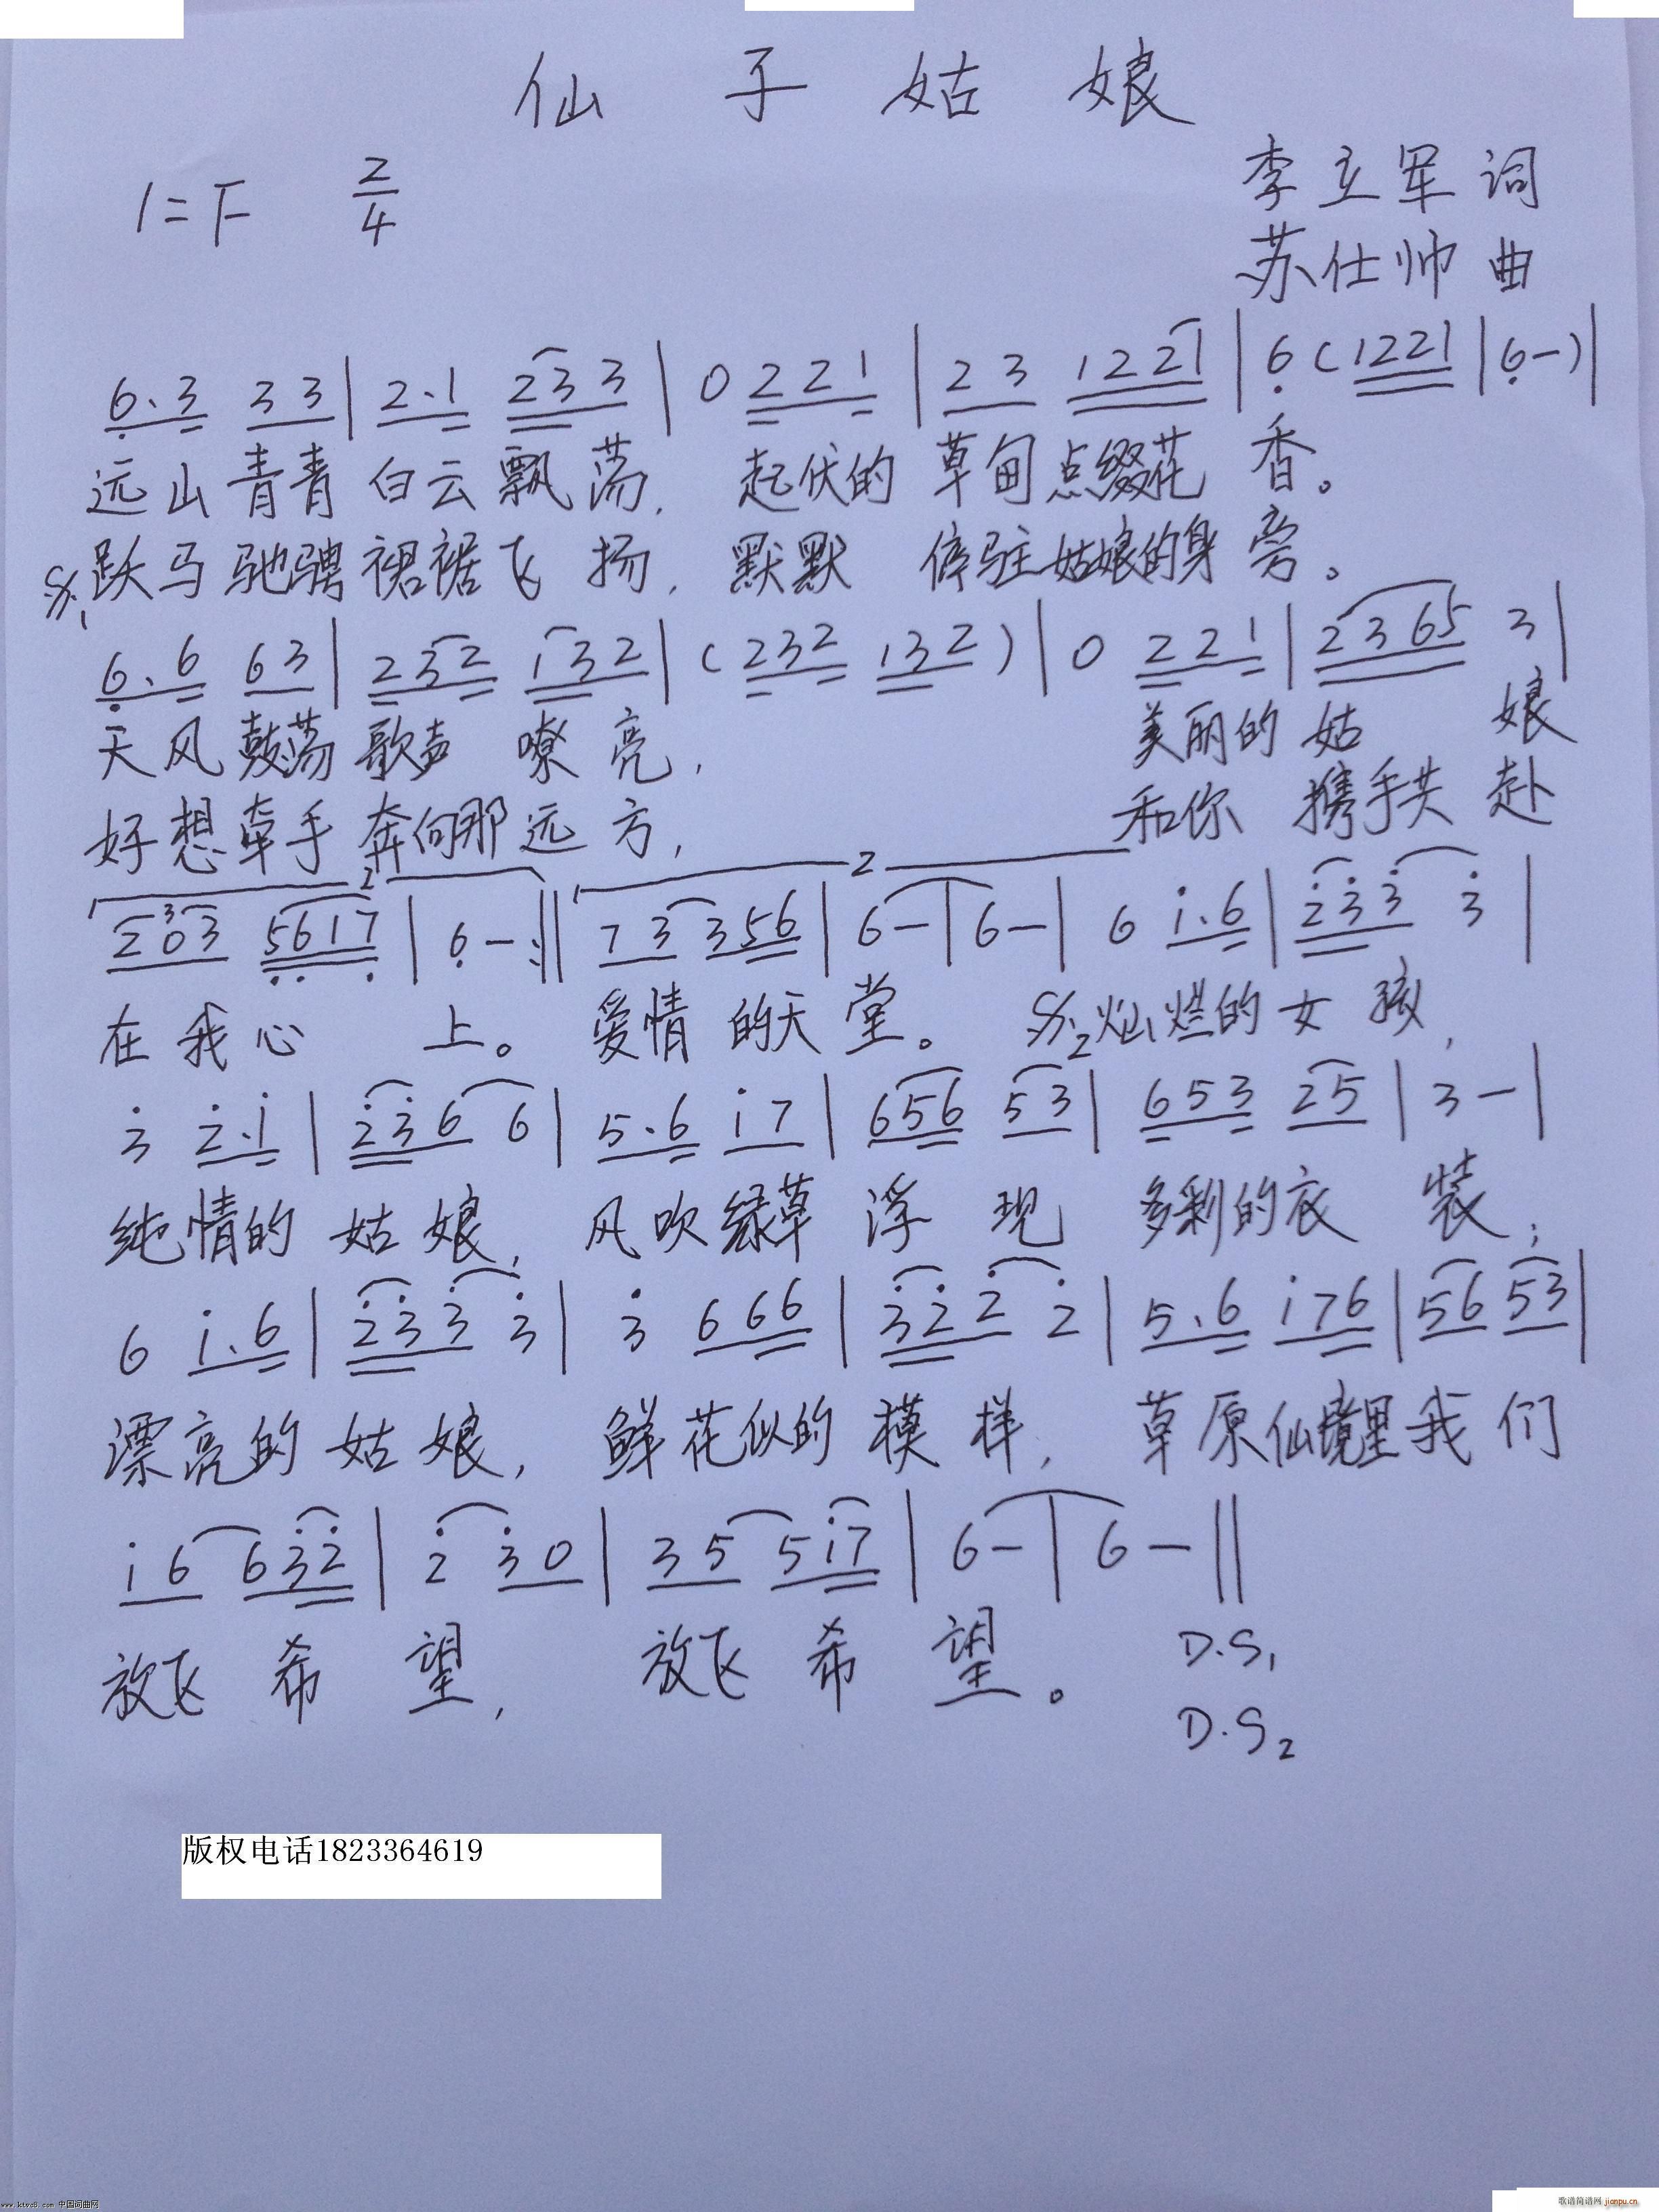 仙子姑娘
1=F 2/4
李立军 词
苏仕帅 曲
6.3 33 | 2.1 233 | 0 221 | 23 1221 | 6 (1221 | 6-) |
远山青青白云飘荡, 起伏的草甸点缀花香。
跃马驰骋裙裾飞扬, 默默停驻姑娘的身旁。
6.6 63 | 232 132 | (232 132) | 0 221 | 2365 3 |
天风鼓荡歌声嘹亮, 美丽的姑娘
好想牵手奔向那远方, 和你携手共赴
203 5617 | 6- :|| 73 356 | 6- | 6- | 6 i.6 | 233 3 |
在我心上。 爱情的天堂。 灿烂的女孩,
3 2.i | 236 6 | 5.6 i7 | 656 53 | 653 25 | 3- |
纯情的姑娘, 风吹绿草浮现多彩的衣装;
6 i.6 | 233 3 | 3 666 | 322 2 | 5.6 i76 | 56 53 |
漂亮的姑娘, 鲜花似的模样, 草原仙境里我们
i6 632 | 2 30 | 35 5i7 | 6- | 6- ||
放飞希望, 放飞希望。 D.S1
D.S2
版权电话1823364619
www.ktvc8.com 中国词曲网
歌谱简谱网 jianpu.cn